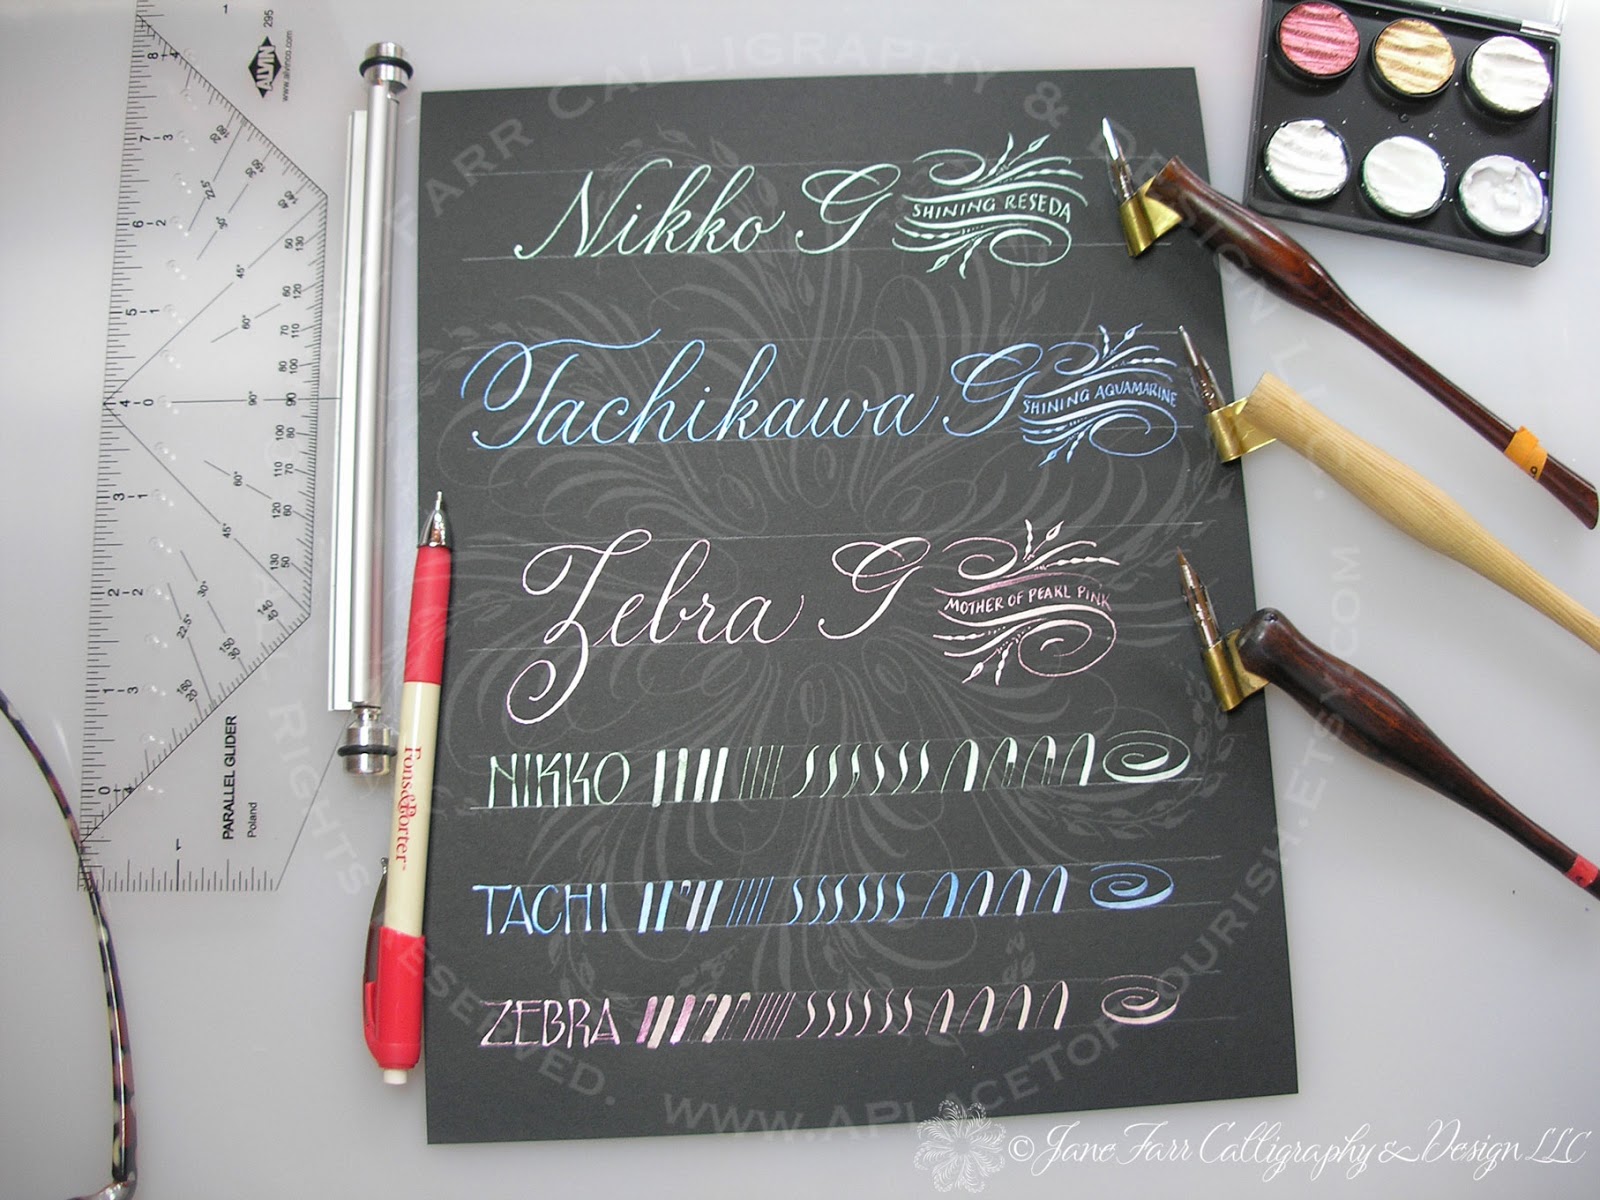 Nikko G SHINING RESEDA
Tachikawa G SHINING AQUAMARINE
Zebra G MOTHER OF PEARL PINK
NIKKO
TACHI
ZEBRA
ALVIN
www.alvinco.com
295
PARALLEL GLIDER
Poland
Fons&Porter
FARR CALLIGRAPHY & DESIGN
ALL RIGHTS RESERVED.
WWW.APLACETOFLOURISH.ETSY.COM
© Jane Farr Calligraphy & Design LLC